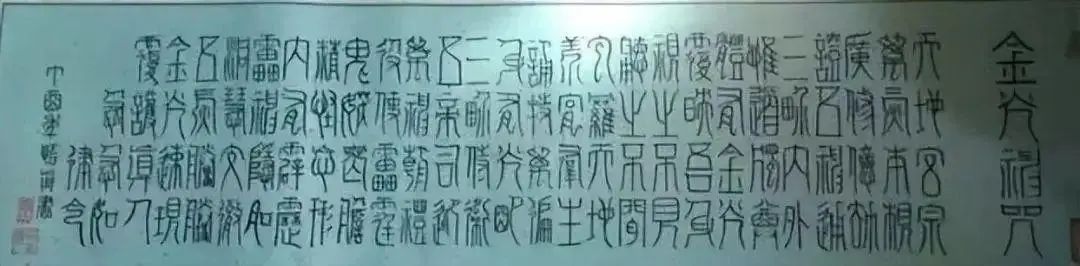 金光神咒
天地玄宗
萬炁本根
廣修億劫
證吾神通
三界內外
惟道獨尊
體有金光
覆映吾身
視之不見
聽之不聞
包羅天地
養育羣生
誦持萬遍
身有光明
三界侍衛
五帝司迎
萬神朝禮
役使雷霆
鬼妖喪膽
精怪忘形
內有霹靂
雷神隱名
洞慧交徹
五炁騰騰
金光速現
覆護真人
急急如
律令
丁酉年書